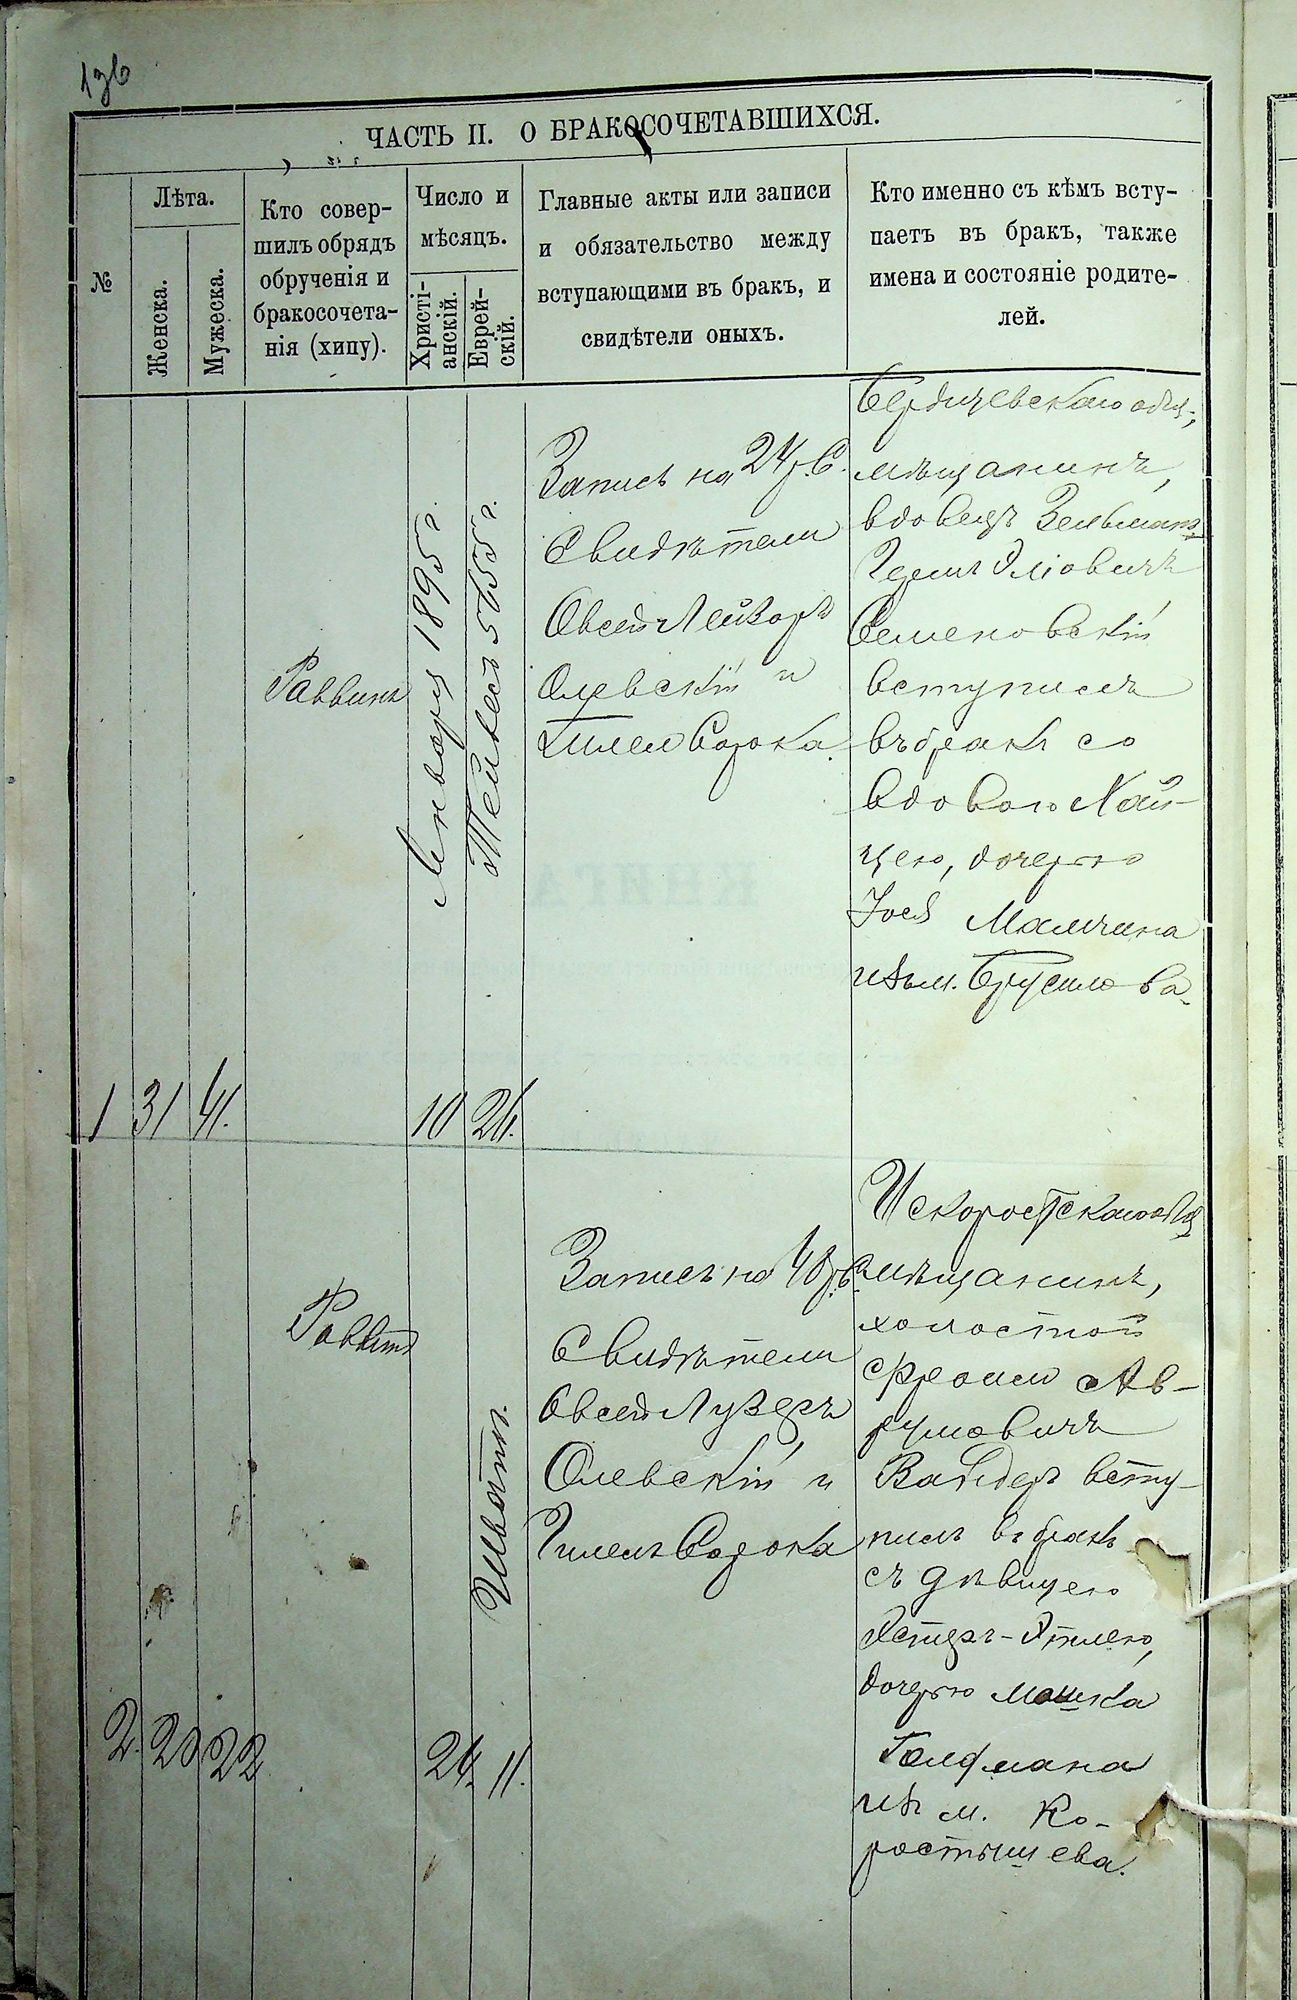 136
ЧАСТЬ II. О БРАКОСОЧЕТАВШИХСЯ.
№
Лѣта.
Женска.
Мужеска.
Кто совер-
шилъ обрядъ
обрученія и
бракосочета-
нія (хипу).
Число и
мѣсяцъ.
Христі-
анскій.
Еврей-
скій.
Главные акты или записи
и обязательство между
вступающими въ бракъ, и
свидѣтели оныхъ.
Кто именно съ кѣмъ всту-
паетъ въ бракъ, также
имена и состояніе родите-
лей.
1
31
41.
Раввинъ
Января 1895 г.
10
Тейвесъ 5655 г.
26.
Запись на 24 р. С.
Свидѣтели
Овсей Лейзоръ
Олевскій и
Гилел Сорока.
Бердичевскаго общ.,
мѣщанинъ,
вдовецъ Зельман
Семеновскій
вступилъ
въ бракъ со
вдовою Хай-
цею, дочерью
Мамчина
изъ м. Брусилова.
2.
20
22
Раввинъ
24.
Шватъ.
11.
Запись на 48 р. С.
Свидѣтели
Овсей Лузеръ
Олевскій и
Гилель Сорока
Искоростскаго общ
мѣщанинъ,
холостой
Фроим Ав-
румовичъ
всту-
пилъ въ бракъ
съ дѣвицею
Эстеръ-Этлею,
дочерью Мошка
Голфмана
изъ м. Ко-
ростышева.